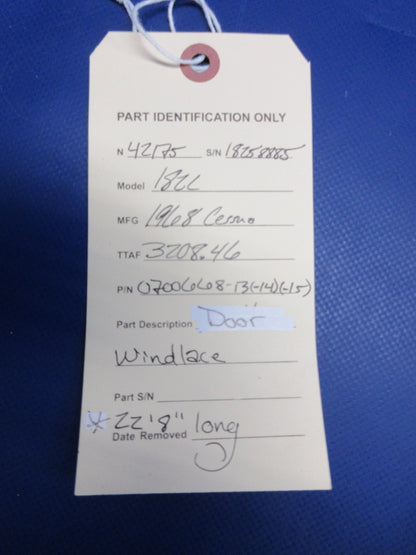 PART IDENTIFICATION ONLY
N 42175 S/N 18258885
Model 182L
MFG 1968 Cessna
TTAF 3208.46
P/N 0700668-13(-14)(-15)
Part Description Door
Windlace
Part S/N
* 22'8" long
Date Removed